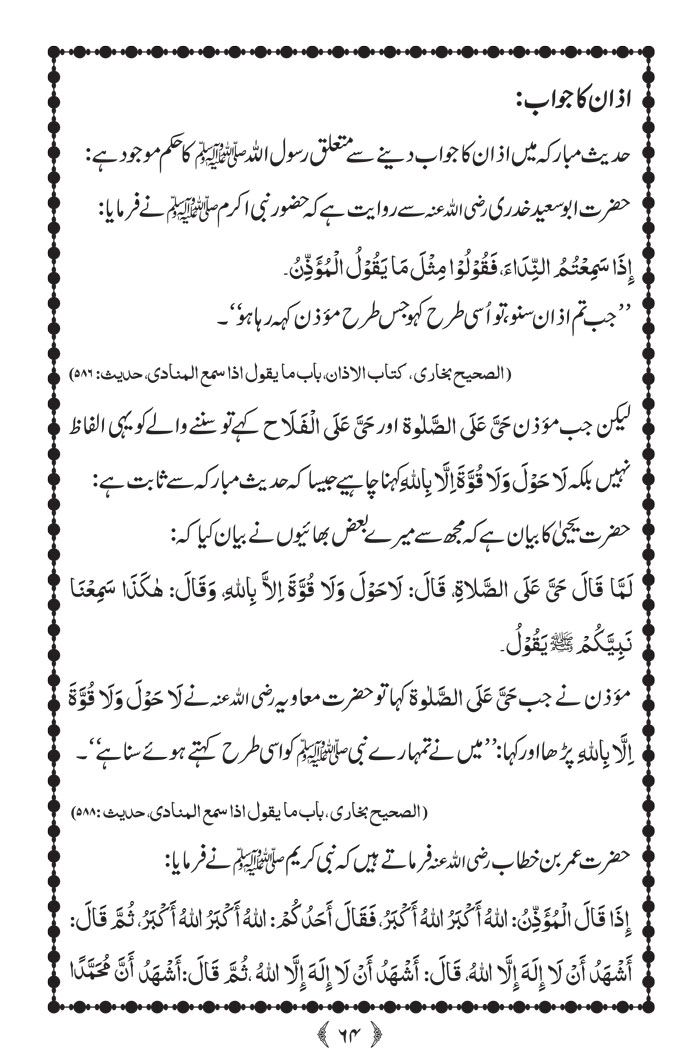 اذان کا جواب:
حدیث مبارکہ میں اذان کا جواب دینے سے متعلق رسول اللہ ﷺ کا حکم موجود ہے:
حضرت ابوسعید خدری رضی اللہ عنہ سے روایت ہے کہ حضور نبی اکرم ﷺ نے فرمایا:
إِذَا سَمِعْتُمُ النِّدَاءَ، فَقُوْلُوْا مِثْلَ مَا يَقُوْلُ الْمُؤَذِّنُ۔
’’جب تم اذان سنو، تو اُسی طرح کہو جس طرح مؤذن کہہ رہا ہو‘‘۔
(الصحیح بخاری، کتاب الاذان، باب ما یقول اذا سمع المنادی، حدیث: ۵۸۶)
لیکن جب مؤذن حَیَّ عَلَی الصَّلٰوة اور حَیَّ عَلَی الْفَلَاح کہے تو سننے والے کو یہی الفاظ
نہیں بلکہ لَا حَوْلَ وَلَا قُوَّةَ اِلَّا بِاللهِ کہنا چاہیے جیسا کہ حدیث مبارکہ سے ثابت ہے:
حضرت یحییٰ کا بیان ہے کہ مجھ سے میرے بعض بھائیوں نے بیان کیا کہ:
لَمَّا قَالَ حَیَّ عَلَی الصَّلاةِ، قَالَ: لَاحَوْلَ وَلَا قُوَّةَ اِلاَّ بِاللهِ، وَقَالَ: هٰكَذَا سَمِعْنَا
نَبِيَّكُمْ ﷺ يَقُوْلُ۔
مؤذن نے جب حَیَّ عَلَی الصَّلٰوة کہا تو حضرت معاویہ رضی اللہ عنہ نے لَا حَوْلَ وَلَا قُوَّةَ
اِلَّا بِاللهِ پڑھا اور کہا: ’’میں نے تمہارے نبی ﷺ کو اسی طرح کہتے ہوئے سنا ہے‘‘۔
(الصحیح بخاری، باب ما یقول اذا سمع المنادی، حدیث: ۵۸۸)
حضرت عمر بن خطاب رضی اللہ عنہ فرماتے ہیں کہ نبی کریم ﷺ نے فرمایا:
إِذَا قَالَ الْمُؤَذِّنُ: اللهُ أَكْبَرُ اللهُ أَكْبَرُ، فَقَالَ أَحَدُكُمْ: اللهُ أَكْبَرُ اللهُ أَكْبَرُ، ثُمَّ قَالَ:
أَشْهَدُ أَنْ لَا إِلَهَ إِلَّا اللهُ، قَالَ: أَشْهَدُ أَنْ لَا إِلَهَ إِلَّا اللهُ، ثُمَّ قَالَ: أَشْهَدُ أَنَّ مُحَمَّدًا
﴿۶۴﴾